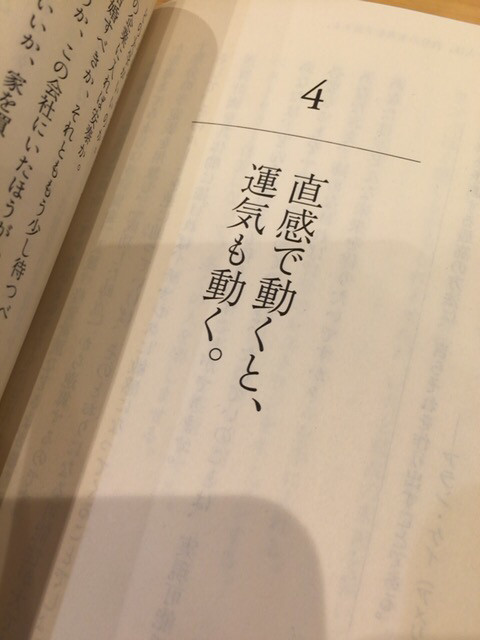 4
直感で動くと、
運気も動く。
すべきか、それとももう少し待つべ
うか、この会社にいたほうが
いいか、家を買